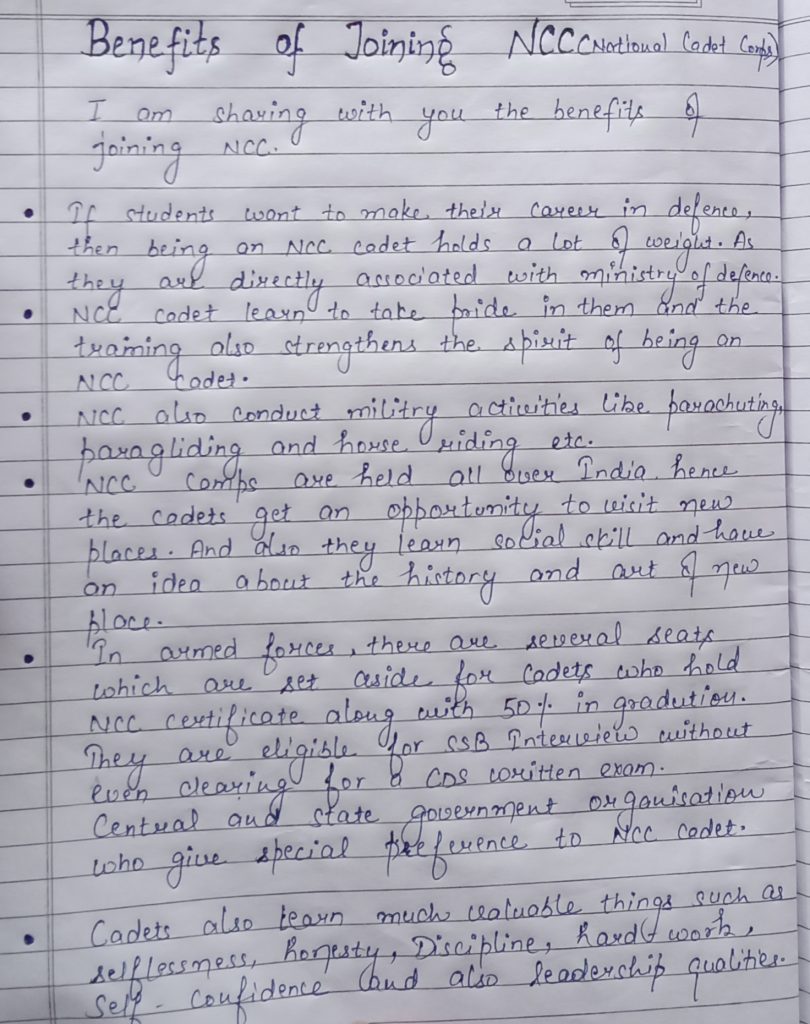 Benefits of Joining NCC (National Cadet Corps)
I am sharing with you the benefits of
joining NCC.
• If students want to make their career in defence,
then being an NCC cadet holds a lot of weight. As
they are directly associated with ministry of defence.
• NCC cadet learn to take pride in them and the
training also strengthens the spirit of being an
NCC Cadet.
• NCC also conduct militry activities like parachuting,
paragliding and horse riding etc.
• NCC camps are held all over India hence
the cadets get an opportunity to visit new
places. And also they learn social skill and have
an idea about the history and art of new
place.
• In armed forces, there are several seats
which are set aside for Cadets who hold
NCC certificate along with 50% in gradution.
They are eligible for SSB Interview without
even clearing for CDS written exam.
Central and state government organisation
who give special preference to NCC cadet.
• Cadets also learn much valuable things such as
selflessness, honesty, Discipline, hard work,
Self-confidence and also leadership qualities.